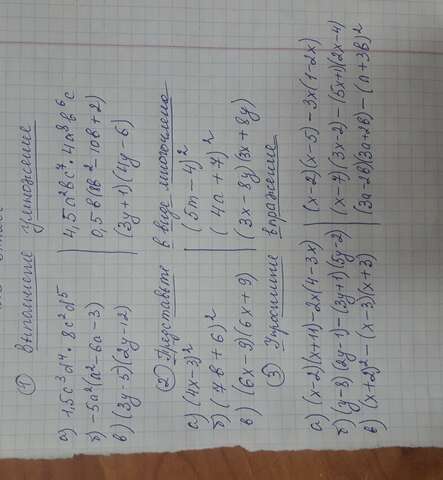 ① Выполнение умножение
а) 1,5c³d⁴ · 8c²d⁵ | 4,5a²bc⁷ · 4a⁸b⁶c
б) −5a²(a²−6a−3) | 0,5b(2b²−10b+2)
в) (3y−5)(2y−12) | (3y+1)(4y−6)
② Представьте в виде многочлена
а) (4x−3)² | (5m−4)²
б) (7b+6)² | (4a+7)²
в) (6x−9)(6x+9) | (3x−8y)(3x+8y)
③ Упросшине впражение
а) (x−2)(x+11)−2x(4−3x) | (x−2)(x−5)−3x(1−2x)
б) (y−8)(2y−1)−(3y+1)(5y−2) | (x−7)(3x−2)−(5x+1)(2x−4)
в) (x+2)²−(x−3)(x+3) | (3a−2b)(3a+2b)−(a+3b)²